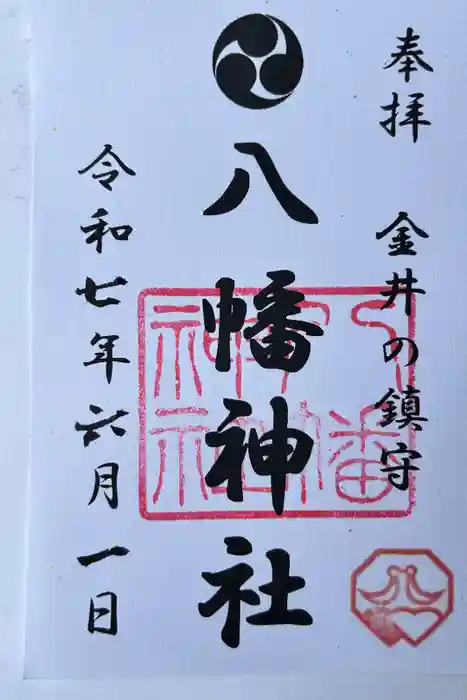 奉拝 金井の鎮守
八幡神社
令和七年六月一日